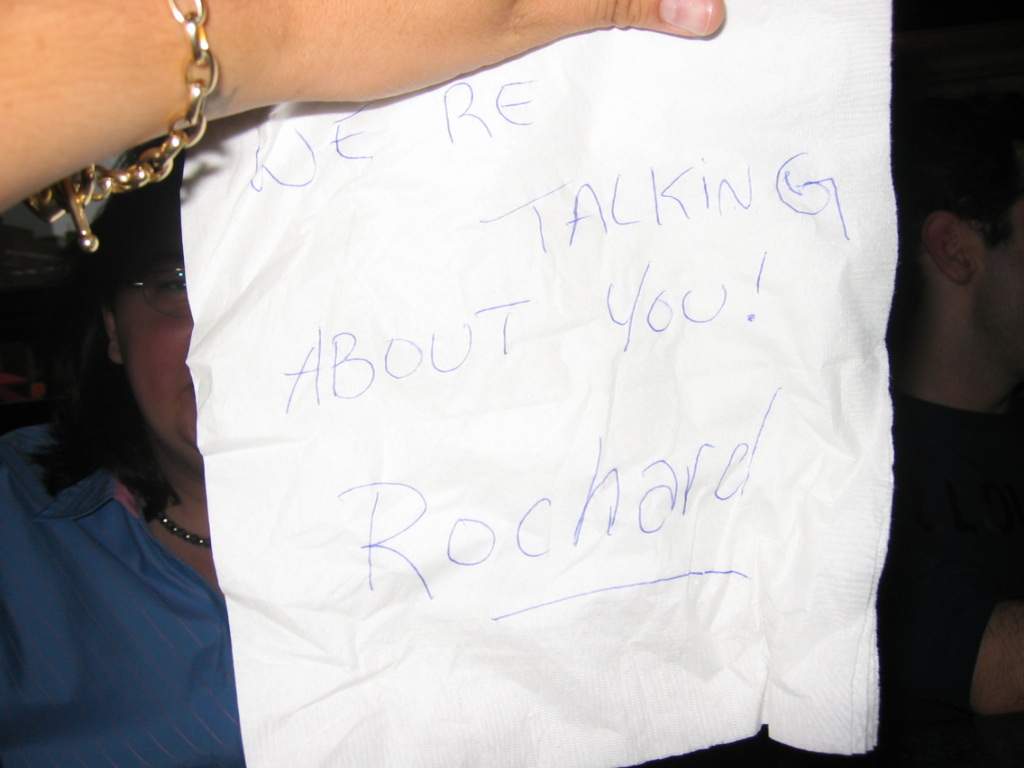 WE RE
TALKiNG
ABOUT YOU!
Rochard